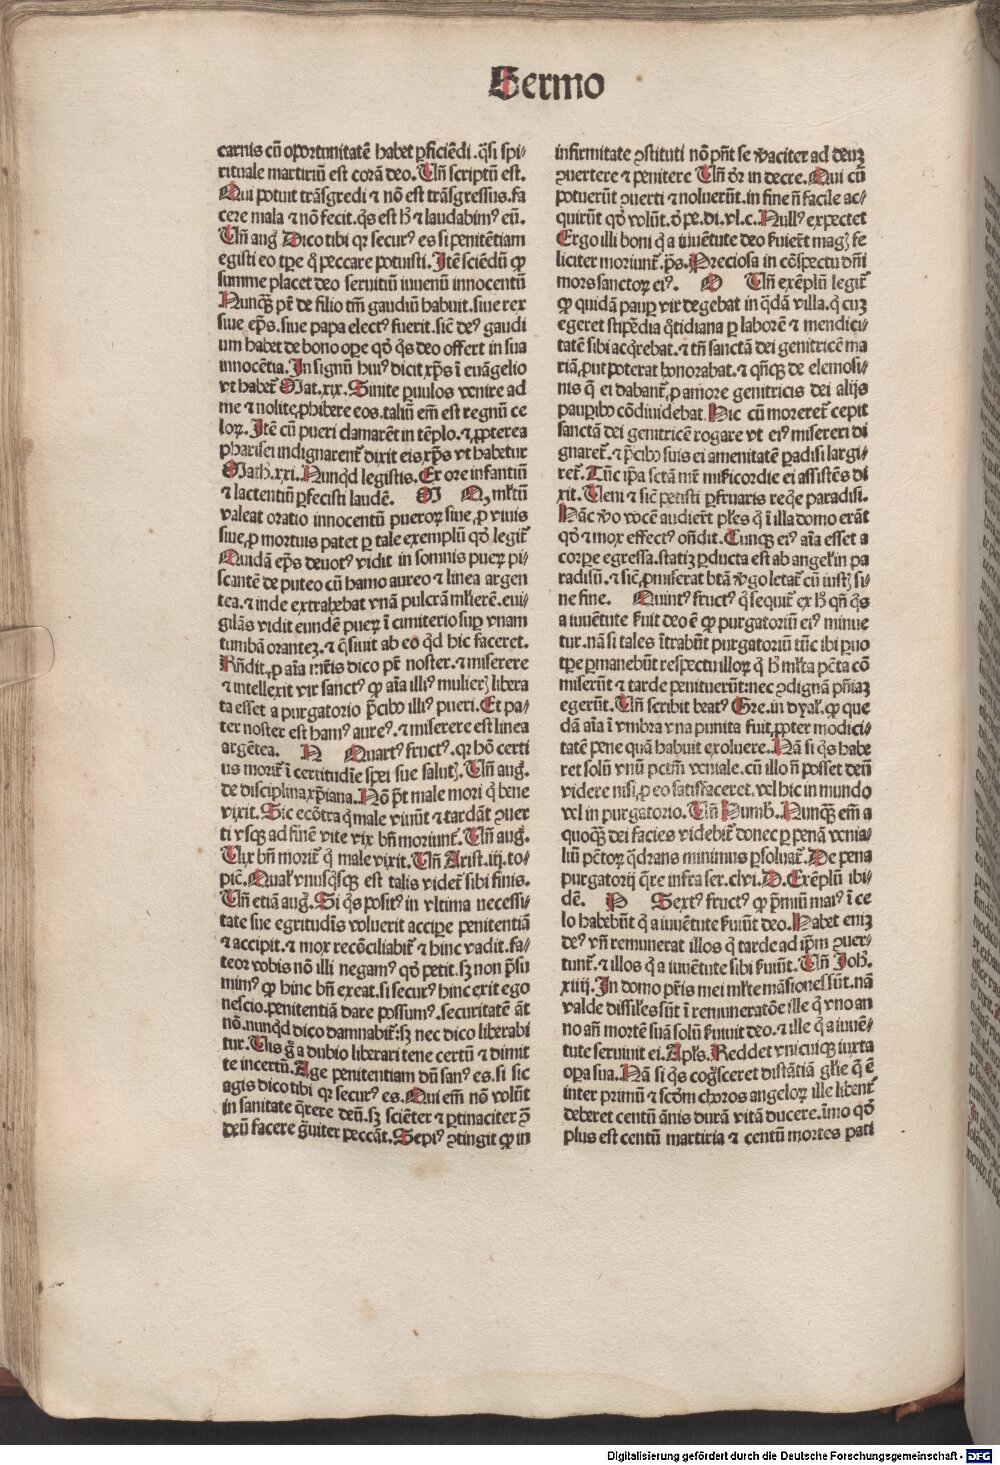 Sermo
carnis cū oportunitatē habet ꝑficiēdi. q̄si spi-
rituale martiriū est corā deo. Uñ scriptū est.
Qui potuit trāsgredi ⁊ nō est trāsgressus. fa
cere mala ⁊ nō fecit. q̄s est hˀ ⁊ laudabimꝰ eū.
Uñ augꝭ Dico tibi qꝛ securꝰ es si penitētiam
egisti eo tꝑe q̄ peccare potuisti. Itē sciēdū ꝙ
summe placet deo seruitiū iuuenū innocentū
Nunqꝫ pr̄ de filio tm̄ gaudiū habuit. siue rex
siue ep̄s. siue papa electꝰ fuerit. sic̄ deꝰ gaudi
um habet de bono oꝑe qd̄ q̄s deo offert in sua
innocētia. In signū huiꝰ dicit xp̄s ī euāgelio
vt habet̄ Mat. xix. Sinite ꝑuulos venire ad
me ⁊ nolite ꝓhibere eos. taliū em̄ est regnū ce
loꝝ. Itē cū pueri clamarēt in tēplo. ⁊ ꝓpterea
pharisei indignarent̄ dixit eis xp̄s vt habetur
Math. xxi. Nunqd legistis. Ex ore infantiū
⁊ lactentiū ꝑfecisti laudē. M Q, ml̄tū
valeat oratio innocentū pueroꝝ siue ꝓ viuis
siue ꝓ mortuis patet ꝑ tale exemplū qd̄ legit̄
Quidā ep̄s deuotꝰ vidit in somnis pueꝝ pi-
scantē de puteo cū hamo aureo ⁊ linea argen
tea. ⁊ inde extrahebat vnā pulcrā ml̄ierē. eui-
gilās vidit eundē pueꝝ ī cimiterio suꝑ vnam
tumbā oranteꝫ. ⁊ q̄siuit ab eo qd hic faceret.
Rn̄dit ꝓ aīa mr̄is dico pr̄ noster. ⁊ miserere
⁊ intellexit vir sanctꝰ ꝙ aīa illiꝰ mulierꝭ libera
ta esset a purgatorio p̄cibꝰ illiꝰ pueri. Et pa-
ter noster est hamꝰ aureꝰ. ⁊ miserere est linea
argētea. N Quartꝰ fructꝰ. qꝛ hō certi
us morit̄ ī certitudīe spei sue salutꝭ. Uñ augꝭ.
de disciplina xp̄iana. Nō p̄t male mori q̄ bene
vixit. Sic ecōtra q̄ male viuūt ⁊ tardāt ꝯuer
ti vsqꝫ ad finē vite vix bn̄ moriunt̄. Uñ augꝭ.
Uix bn̄ morit̄ q̄ male vixit. Uñ Arist. iij. to-
pic̄. Qual̄ vnusq̄sqꝫ est talis videt̄ sibi finis.
Uñ etiā augꝭ. Si q̄s positꝰ in vltima necessi-
tate sue egritudīs voluerit acciꝑe penitentiā
⁊ accipit. ⁊ mox recōciliabit̄ ⁊ hinc vadit. fa-
teor vobis nō illi negamꝰ qd̄ petit. sꝫ non p̄su
mimꝰ ꝙ hinc bn̄ exeat. si securꝰ hinc exit ego
nescio. penitentiā dare possumꝰ. securitatē āt
nō. nunqd dico damnabit̄. sꝫ nec dico liberabi
tur. Uis g̊ a dubio liberari tene certū ⁊ dimit
te incertū. Age penitentiam dū sanꝰ es. si sic
agis dico tibi qꝛ securꝰ es. Qui em̄ nō volūt
in sanitate q̄rere deū. sꝫ sciēter ⁊ ꝑtinaciter ꝯ
deū facere g̊uiter peccāt. Sepiꝰ ꝯtingit ꝙ in
infirmitate ꝯstituti nō pn̄t se v̄aciter ad deuꝫ
ꝯuertere ⁊ penitere Uñ dr̄ in decre. Qui cū
potuerūt ꝯuerti ⁊ noluerūt. in fine n̄ facile ac-
quirūt qd̄ volūt. d̄ pe. di. vl. c. Nullꝰ expectet
Ergo illi boni q̄ a iuuētute deo ẜuierūt magꝭ fe
liciter moriunt̄. p̄s. Preciosa in cōspectu dn̄i
mors sanctoꝝ eiꝰ. O Uñ exēplū legit̄
ꝙ quidā pauꝑ vir degebat in q̄dā villa. q̄ cuꝫ
egeret stipēdia q̄tidiana ꝑ laborē ⁊ mendici-
tatē sibi acq̄rebat. ⁊ tn̄ sanctā dei genitricē ma
riā. put poterat honorabat. ⁊ qn̄qꝫ de elemosi-
nis q̄ ei dabant̄ ꝓ amore genitricis dei alijs
pauꝑibꝰ cōdiuidebat. Hic cū moreret̄ cepit
sanctā dei genitricē rogare vt eiꝰ misereri di
gnaret̄. ⁊ p̄cibꝰ suis ei amenitatē paradisi largi-
ret̄. Tūc ip̄a sctā mr̄ mīcordie ei assistēs di
xit. Ueni ⁊ sic̄ petisti ꝑfruaris req̄e paradisi.
Hāc v̄o vocē audierūt ples q̄ ī illa domo erāt
qd̄ ⁊ mox effectꝰ oñdit. Cunqꝫ eiꝰ aīa esset a
corꝑe egressa. statiꝫ ꝑducta est ab angelꝭ in pa
radisū. ⁊ sic̄ ꝓmiserat btā v̄go letat̄ cū iustꝭ si-
ne fine. Quintꝰ fructꝰ q̄ sequit̄ ex hˀ qn̄ q̄s
a iuuētute ẜuit deo ē ꝙ purgatoriū eiꝰ minue
tur. nā si tales ītrabūt purgatoriū tūc ibi ꝑuo
tꝑe ꝑmanebūt respectu illoꝝ q̄ hˀ ml̄ta pctā cō
miserūt ⁊ tarde penituerūt: nec ꝯdignā pn̄iaꝫ
egerūt. Uñ scribit beatꝰ Gre. in dyal̄. ꝙ que
dā aīa ī vmbra vna punita fuit ꝓpter modici-
tatē pene quā habuit exoluere. Nā si q̄s habe
ret solū vnū pctm̄ veniale. cū illo n̄ posset deū
videre nisi ꝓ eo satisfaceret. vel hic in mundo
vel in purgatorio. Uñ Humb. Nunqꝫ em̄ a
quoqꝫ dei facies videbit̄ donec ꝑ penā venia-
liū pctoꝝ q̄drans minimus ꝑsoluat̄. De pena
purgatorij q̄re infra ser. clvi. D. Exēplū ibi-
dē. P Sextꝰ fructꝰ ꝙ p̄miū maiꝰ ī ce
lo habebūt q̄ a iuuētute ẜuiūt deo. Habet eniꝫ
deꝰ vn̄ remunerat illos q̄ tarde ad ip̄m ꝯuer-
tunt̄. ⁊ illos q̄ a iuuētute sibi ẜuiūt. Uñ Joh.
xiiij. In domo pr̄is mei ml̄te māsiones sūt. nā
valde dissiles sūt ī remuneratōe ille q̄ vno an
no añ mortē suā solū ẜuiuit deo. ⁊ ille q̄ a iuuē-
tute seruiuit ei. Apl̄s. Reddet vnicuiqꝫ iuxta
oꝑa sua. Nā si q̄s cog̊sceret distātiā gl̄ie q̄ ē
inter primū ⁊ scd̄m choros angeloꝝ ille libent̄
deberet centū ānis durā vitā ducere. īmo qd̄
plus est centū martiria ⁊ centū mortes pati
Digitalisierung gefördert durch die Deutsche Forschungsgemeinschaft - DFG